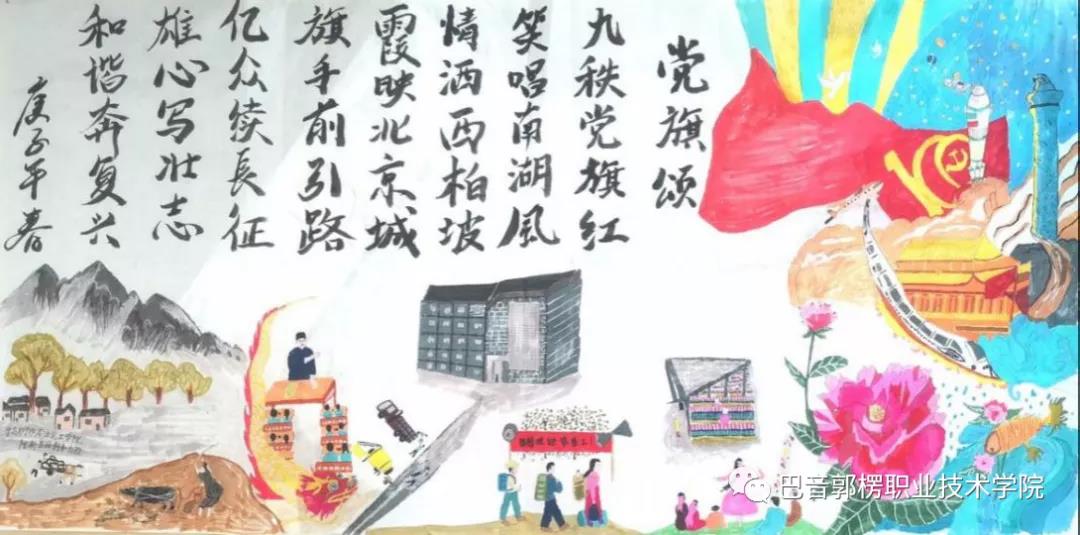 党旗颂
九秩党旗红
笑唱南湖风
情洒西柏坡
霞映北京城
旗手前引路
亿众续長征
雄心写壮志
和谐奔复兴
庚子年春
巴音郭楞职业技术学院